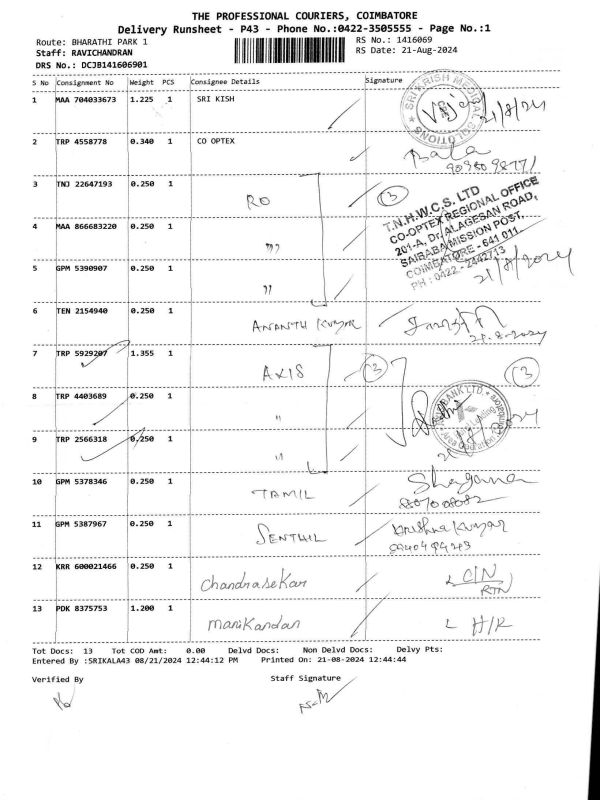 THE PROFESSIONAL COURIERS, COIMBATORE
Delivery Runsheet - P43 - Phone No.:0422-3505555 - Page No.:1
Route: BHARATHI PARK 1
RS No.: 1416069
Staff: RAVICHANDRAN
RS Date: 21-Aug-2024
DRS No.: DCJB141606901
S No Consignment No Weight PCS Consignee Details Signature
1 MAA 704033673 1.225 1 SRI KISH
SRI KRISH MEDICAL SOLUTIONS
21/8/24
2 TRP 4558778 0.340 1 CO OPTEX
Bala
3 TNJ 22647193 0.250 1 RO 3
T.N.H.W.C.S. LTD
CO-OPTEX REGIONAL OFFICE
201-A, Dr. ALAGESAN ROAD,
SAIBABA MISSION POST,
COIMBATORE - 641 011.
PH : 0422 - 2442713
21/8/2024
4 MAA 866683220 0.250 1 "
5 GPM 5390907 0.250 1 "
6 TEN 2154940 0.250 1 ANANTH KUMAR
21-8-2024
7 TRP 5929207 1.355 1 AXIS 3 3
8 TRP 4403689 0.250 1 "
21/8/24
9 TRP 2566318 0.250 1 "
10 GPM 5378346 0.250 1 TAMIL
11 GPM 5387967 0.250 1 SENTHIL Krishna Kumar
12 KRR 600021466 0.250 1 Chandrasekar C/N
RTN
13 PDK 8375753 1.200 1 Manikandan H/R
Tot Docs: 13 Tot COD Amt: 0.00 Delvd Docs: Non Delvd Docs: Delvy Pts:
Entered By :SRIKALA43 08/21/2024 12:44:12 PM Printed On: 21-08-2024 12:44:44
Verified By
Staff Signature